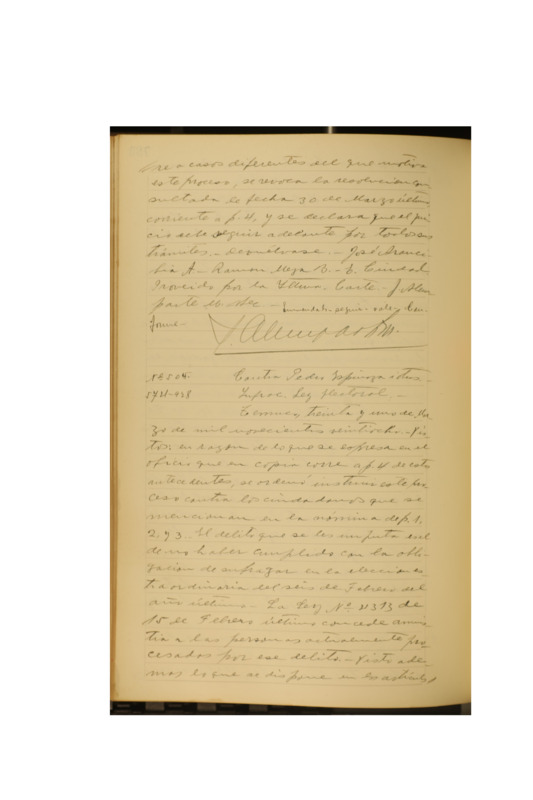 re a casos diferentes del que motiva
este proceso, se revoca la resolución con
sultada de fecha 30 de Marzo último
corriente a p. 4, y se declara que el jui
cio debe seguir adelante por todos sus
trámites.- Devuélvase.- José Arauci
bia A.- Ramón Meza V.- E. Ciudad
Proveído por la Iltma. Corte.- J. Alem
parte M. Sec.-
forme-
Contra Pedro Espinoza otros-
5721-928 Infrac. Ley Electoral.-
Temuco, treinta y uno de
30 de mil novecientos veintiocho.- Vis
tos; en razón de lo que se expresa en el
oficio que en copia corre a p. 4 de estos
antecedentes, se ordenó instruir este pro
ceso contra los ciudadanos que se
mencionan en la nómina de p. 1,
2, y 3.- El delito que se les imputa es el
de no haber cumplido con la obli-
gación de sufragar en la elección es-
traordinaria del seis de Febrero del
año último.- La Ley Nº 4313 de
15 de Febrero último concede amnis
tia a las personas actualmente pro-
cesadas por ese delito.- Visto ade-
mas lo que se dispone en los artículos